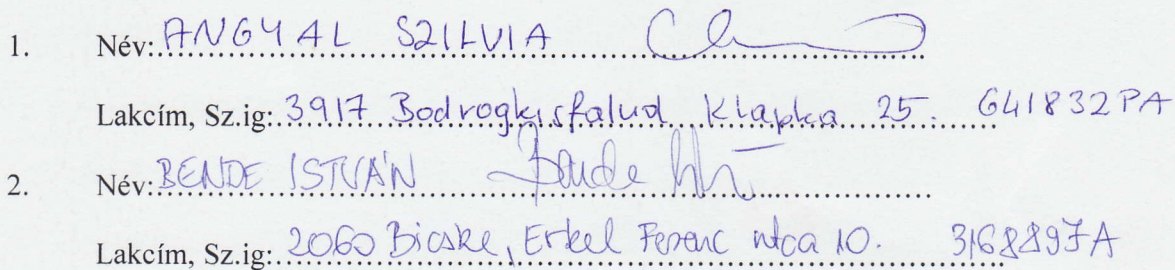 1. Név: ANGYAL SZILVIA
Lakcím, Sz.ig: 3917 Bodrogkisfalud Klapka 25. 641832PA
2. Név: BENDE ISTVÁN Bende
Lakcím, Sz.ig: 2060 Bicske, Erkel Ferenc utca 10.